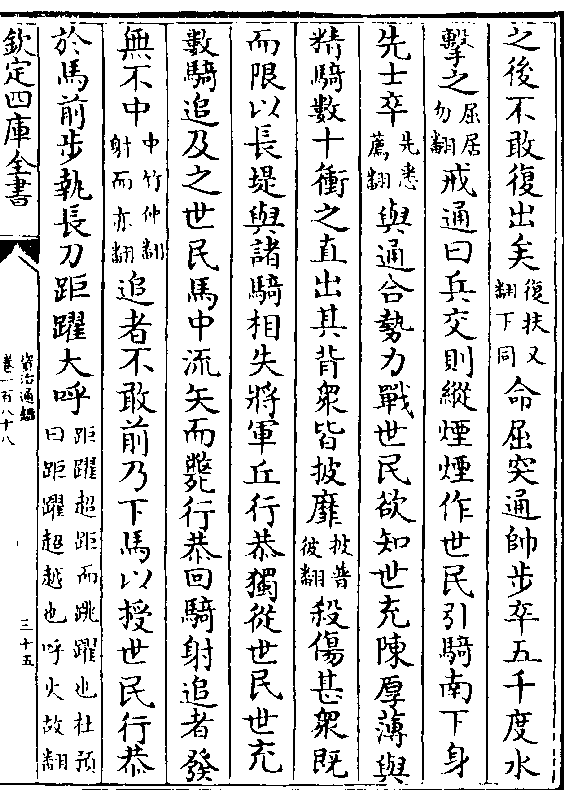 之後不敢復出矣復扶又翻下同命屈突通帥步卒五千度水
擊之屈居勿翻戒通曰兵交則縱煙煙作世民引騎南下身
先士卒先悉薦翻與通合勢力戰世民欲知世充陳厚薄與
精騎數十衝之直出其背衆皆披靡披普彼翻殺傷甚衆既
而限以長堤與諸騎相失將軍丘行恭獨從世民世充
數騎追及之世民馬中流矢而斃行恭回騎射追者發
無不中中竹仲翻射而亦翻追者不敢前乃下馬以授世民行恭
於馬前步執長刀距躍大呼距躍超距而跳躍也杜預曰距躍超越也呼火故翻
欽定四庫全書
資治通鑑
卷一百八十八
三十五